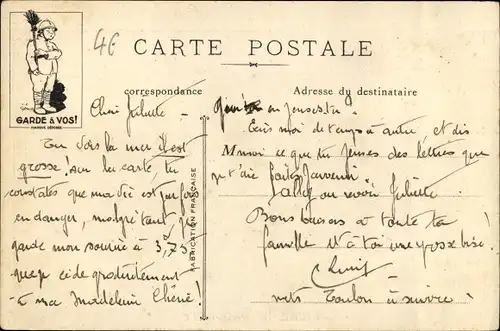 4G
CARTE POSTALE
GARDE à VOS!
MARQUE DÉPOSÉE
correspondance
Adresse du destinataire
FABRICATION FRANÇAISE
Chère Juliette -
Tu vois la mer Elle est
grosse! sur la carte, tu
constates que ma vie est parfois
en danger, malgré tant, je
garde mon sourire à 3,75
que je cède gratuitement
à ma Madeleine Chérie!
Qu'en penses tu?
Ecris moi de temps à autre, et dis
moi ce que tu penses des lettres que
je t'ai fait parvenir.
Allez au revoir Juliette
Bons baisers à toute ta
famille et à toi une grosse bise!
vers Toulon à suivre!